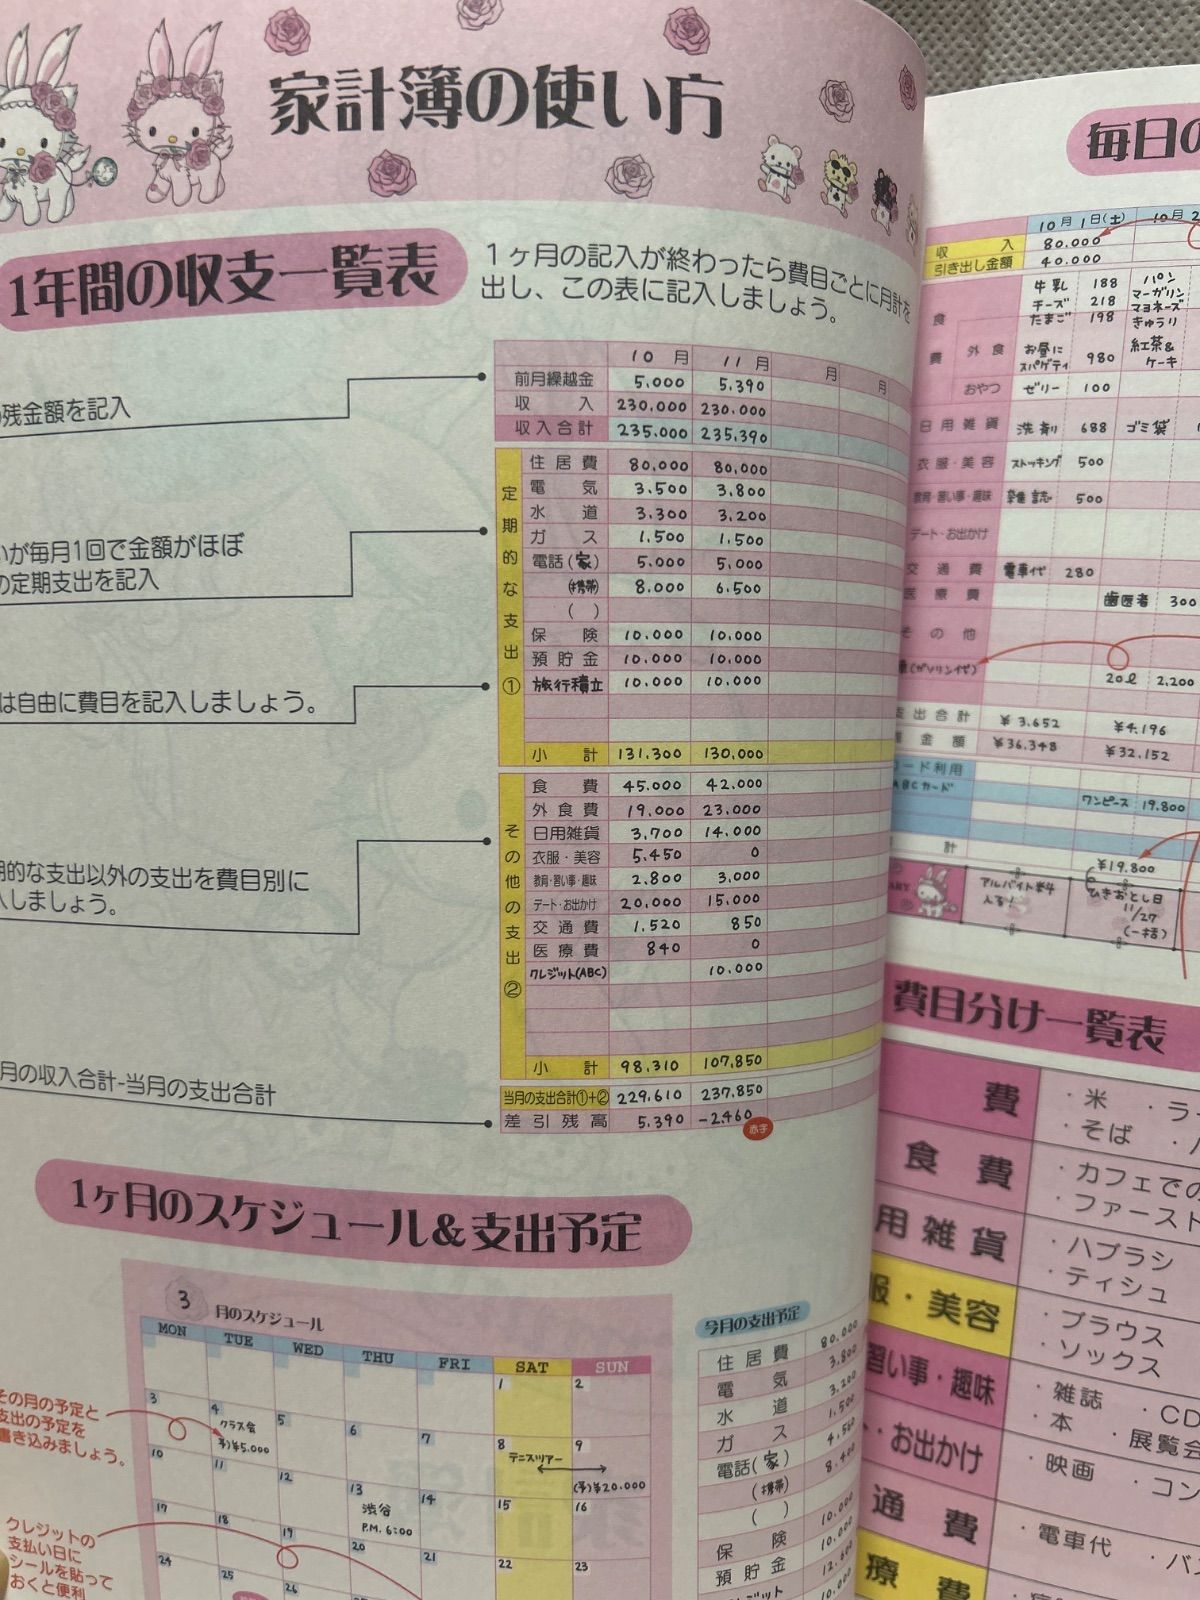 家計簿の使い方
1年間の収支一覧表
1ヶ月の記入が終わったら費目ごとに月計を
出し、この表に記入しましょう。
残金額を記入
が毎月1回で金額がほぼ
の定期支出を記入
は自由に費目を記入しましょう。
的な支出以外の支出を費目別に
しましょう。
月の収入合計-当月の支出合計
10月 11月 月 月
前月繰越金 5.000 5.390
収入 230.000 230.000
収入合計 235.000 235.390
定期的な支出①
住居費 80,000 80,000
電気 3.500 3.800
水道 3.300 3,200
ガス 1.500 1.500
電話(家) 5.000 5,000
(携帯) 8.000 6.500
( )
保険 10.000 10.000
預貯金 10.000 10.000
旅行積立 10.000 10.000
小計 131.300 130.000
その他の支出②
食費 45.000 42.000
外食費 19.000 23.000
日用雑貨 3,700 14.000
衣服・美容 5.450 0
教育・習い事・趣味 2.800 3,000
デート・お出かけ 20,000 15,000
交通費 1.520 850
医療費 840 0
クレジット(ABC) 10.000
小計 98.310 107.850
当月の支出合計①+② 229.610 237.850
差引残高 5.390 -2.460
赤字
1ヶ月のスケジュール&支出予定
3 月のスケジュール
MON TUE WED THU FRI SAT SUN
1 2
3 4 5 6 7 8 9
クラス会
予)¥5.000
テニスツアー
(予)¥20.000
10 11 12 13 14 15 16
渋谷
P.M. 6:00
17 18 19 20 21 22 23
24 25 26
その月の予定と
支出の予定を
書き込みましょう。
クレジットの
支払い日に
シールを貼って
おくと便利
今月の支出予定
住居費 80.000
電気 3.800
水道 3.200
ガス 1.500
電話(家) 4.560
(携帯) 8.400
( )
保険 10.000
預貯金 10.000
12.600
10.000
毎日の
10月1日(土) 10月2
収入 80.000
引き出し金額 40.000
食費
牛乳 188 パン
チーズ 218 マーガリン
たまご 198 マヨネーズ
きゅうり
外食 お昼にスパゲティ 980 紅茶&ケーキ
おやつ ゼリー 100
日用雑貨 洗剤 688 ゴミ袋
衣服・美容 ストッキング 500
教育・習い事・趣味 雑誌 500
デート・お出かけ
交通費 電車代 280
医療費 歯医者 300
その他
(ガソリン代) 20ℓ 2,200
出合計 ¥3.652 ¥4.196
金額 ¥36.348 ¥32.152
ード利用
ABCカード ワンピース 19.800
計 ¥19.800
アルバイト料
入る!
ひきおとし日
11/27
(一括)
費目分け一覧表
費 ・米 ・ラー
・そば
食費 ・カフェでの
・ファースト
用雑貨 ・ハブラシ
・ティシュ
服・美容 ・ブラウス
・ソックス
習い事・趣味 ・雑誌 ・CD
・本 ・展覧会
・お出かけ ・映画 ・コン
通費 ・電車代 ・バ
療費